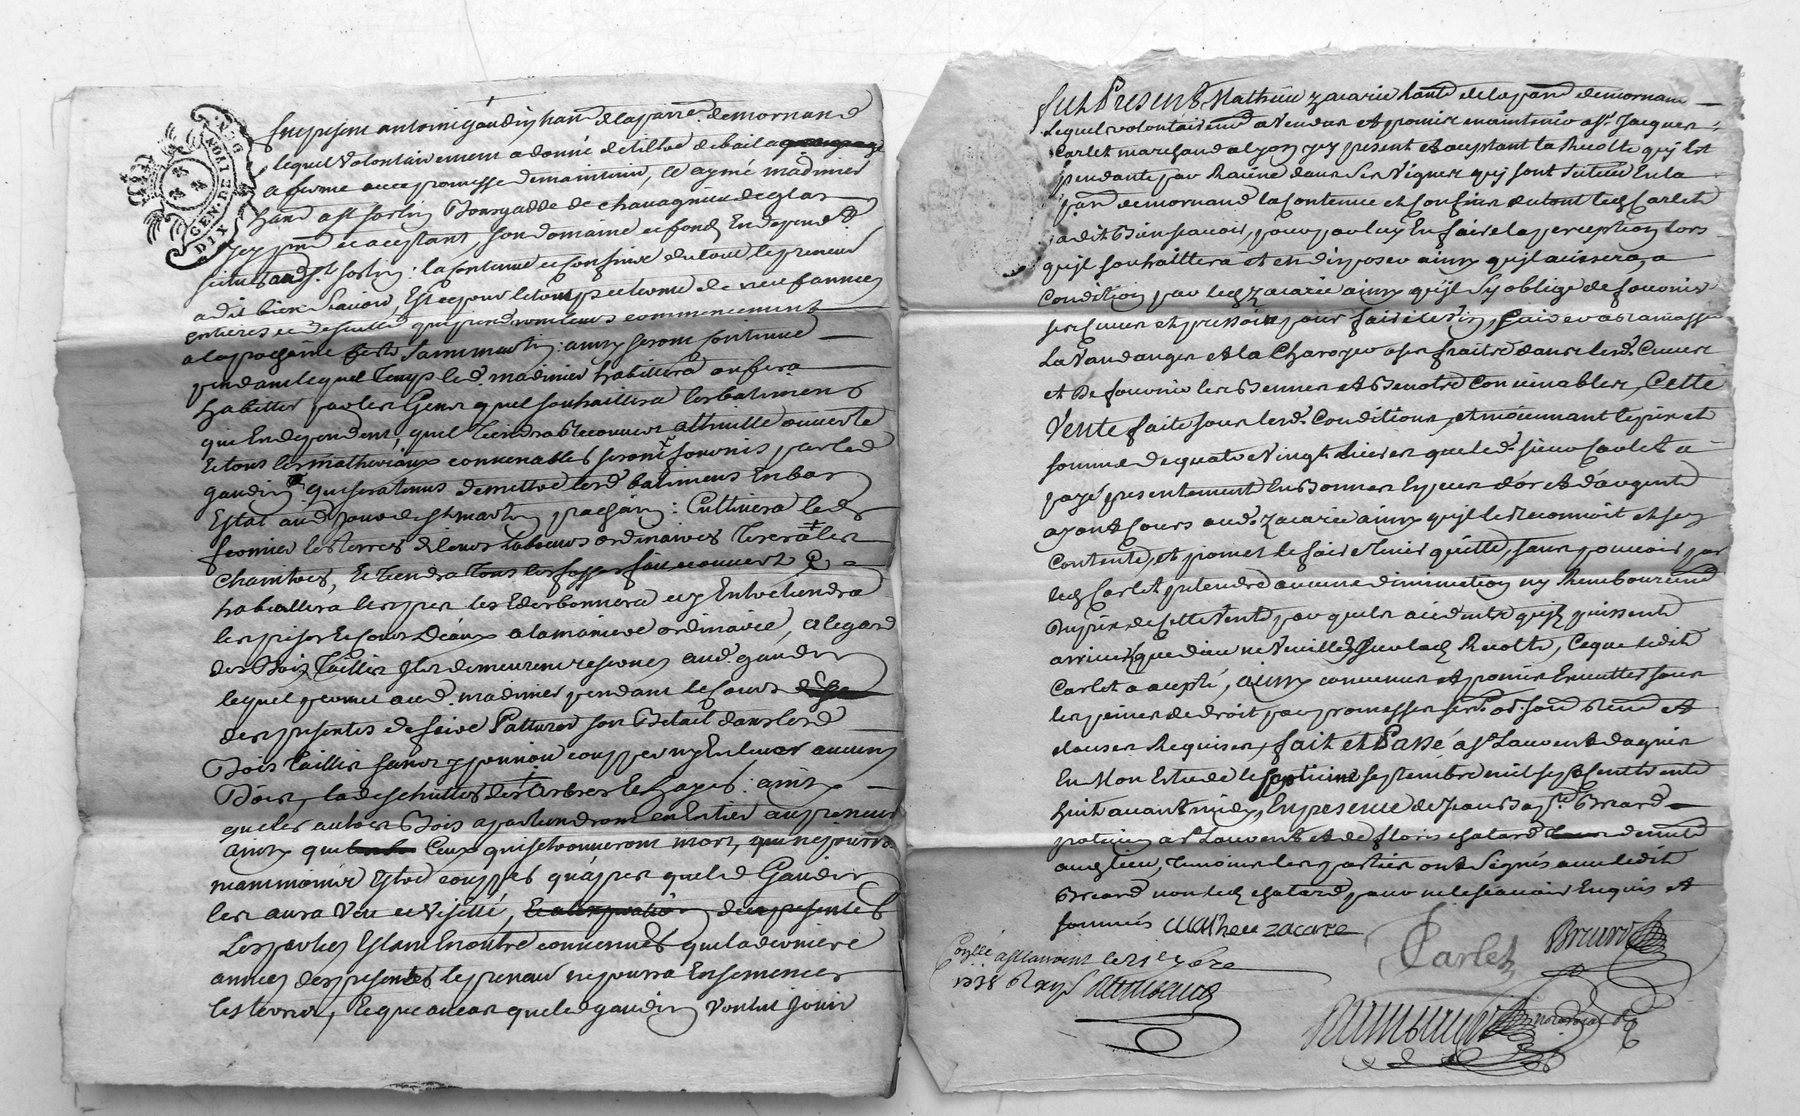 GEN. DE LION
DIX DEN.
fut present antoine gaudin hant de la parr. de mornand
lequel volontairement a donné de tiltre de bail a
a ferme avec promesse de maintenir, a aymé madinier
hant a st sorlin Bourgade de chavagnieu
icy pnt et aceptant, son domaine et fond en dependt
situés aud st sorlin : la contenue et confins du tout le preneur
a dit bien scavoir, Et ce pour le temps et terme de neuf années
entieres et de suitte qui prendront leurs commencement
a la prochaine feste Saint martin : ainsy seront continué
pendant lequel temps led. madinier habittera ou fera
habitter par les Gens quel souhaittera les batiments
qui En dependent, quel tiendra
Et tous les matheriaux convenables seront fournis par led
gaudin qui sera tenus de mettre lesd batimens En bon
Estat aud jour de st martin prochain : Cultivera led
fermier les terres de leurs labeurs ordinaires
Et tiendra tous les fossés
les prés
les prises Et cours d'éaux a la maniere ordinaire, a legard
des Bois Taillis ils demeurent reservés aud. gaudin
lequel permet aud. madinier pendant le cours
des presentes de faire Patturer son Betail dans lesd
Bois taillis sans y pouvoir coupper ny Enlever aucuns
Bois, la des arbres Et hayes : ainsy
que les autres Bois apartiendront en Entier au preneur
ainsy que Ceux qui se trouveront mort, qui ne pourront
neanmoins Estre couppés qu'apres que led Gaudin
les aura Veu et Visitté, Et a l'expiration des presentes
Les parties Estant En outre convenues que la derniere
année des presentes le preneur ne pourra Ensemencer
les terres, Et que au cas que led gaudin Voulut jouir
fut Present Mathieu zacarie hant de la parr de mornand
Lequel volontairemt a Vendu et promis maintenir a sr. Jacques
Carlet marchand a lyon icy present et aceptant la Recolte qui Est
pendante par Racine dans ses Vignes qui sont situées En la
parr de mornand la Contenue et confins du tout led Carlet
a dit Bien scavoir, pour par luy En faire la perception lors
qu'il souhaittera et en disposer ainsy qu'il avisera, a
Condition par led zacarie ainsy qu'il s'y oblige de fournir
ses Cuves et pressoir pour faire le vin, d'aider a ramasser
La Vandange et la Charoyer dans lesd. Cuves
et De fournir les Bennes et convenables, Cette
Vente faite sous lesd. Conditions, et moiennant le prix et
somme de quatre Vingt livres que led. sieur Carlet a
payé presentement En Bonnes Especes d'or et d'argent
ayant Cours aud. zacarie ainsy qu'il le Reconnoit et s'en
Contente, et promet le faire tenir quitte, sans pouvoir par
led Carlet pretendre aucune diminution ny Remboursemt
Du prix de cette Vente par quels accidents qu'ils puissent
arriver (que dieu ne Veuille) sur lad Recolte, Ce que ledit
Carlet a acepté, ainsy convenu et promis Executter sous
les peines de droit par promesses sermt. obl. soum. Renon et
clauses Requises, fait et Passé a st Laurent d'agnin
En Mon Estude le septieme septembre mil sept Cent trente
huit avant midy, En presence de Jean Bapte. Breard
praticien a st Laurent et de floris chatard demeurt
aud lieu, temoins les parties ont signés avec ledit
Breard non led chatard, pour ne le scavoir Enquis et
sommés Matheu zacare
Carlet
1738